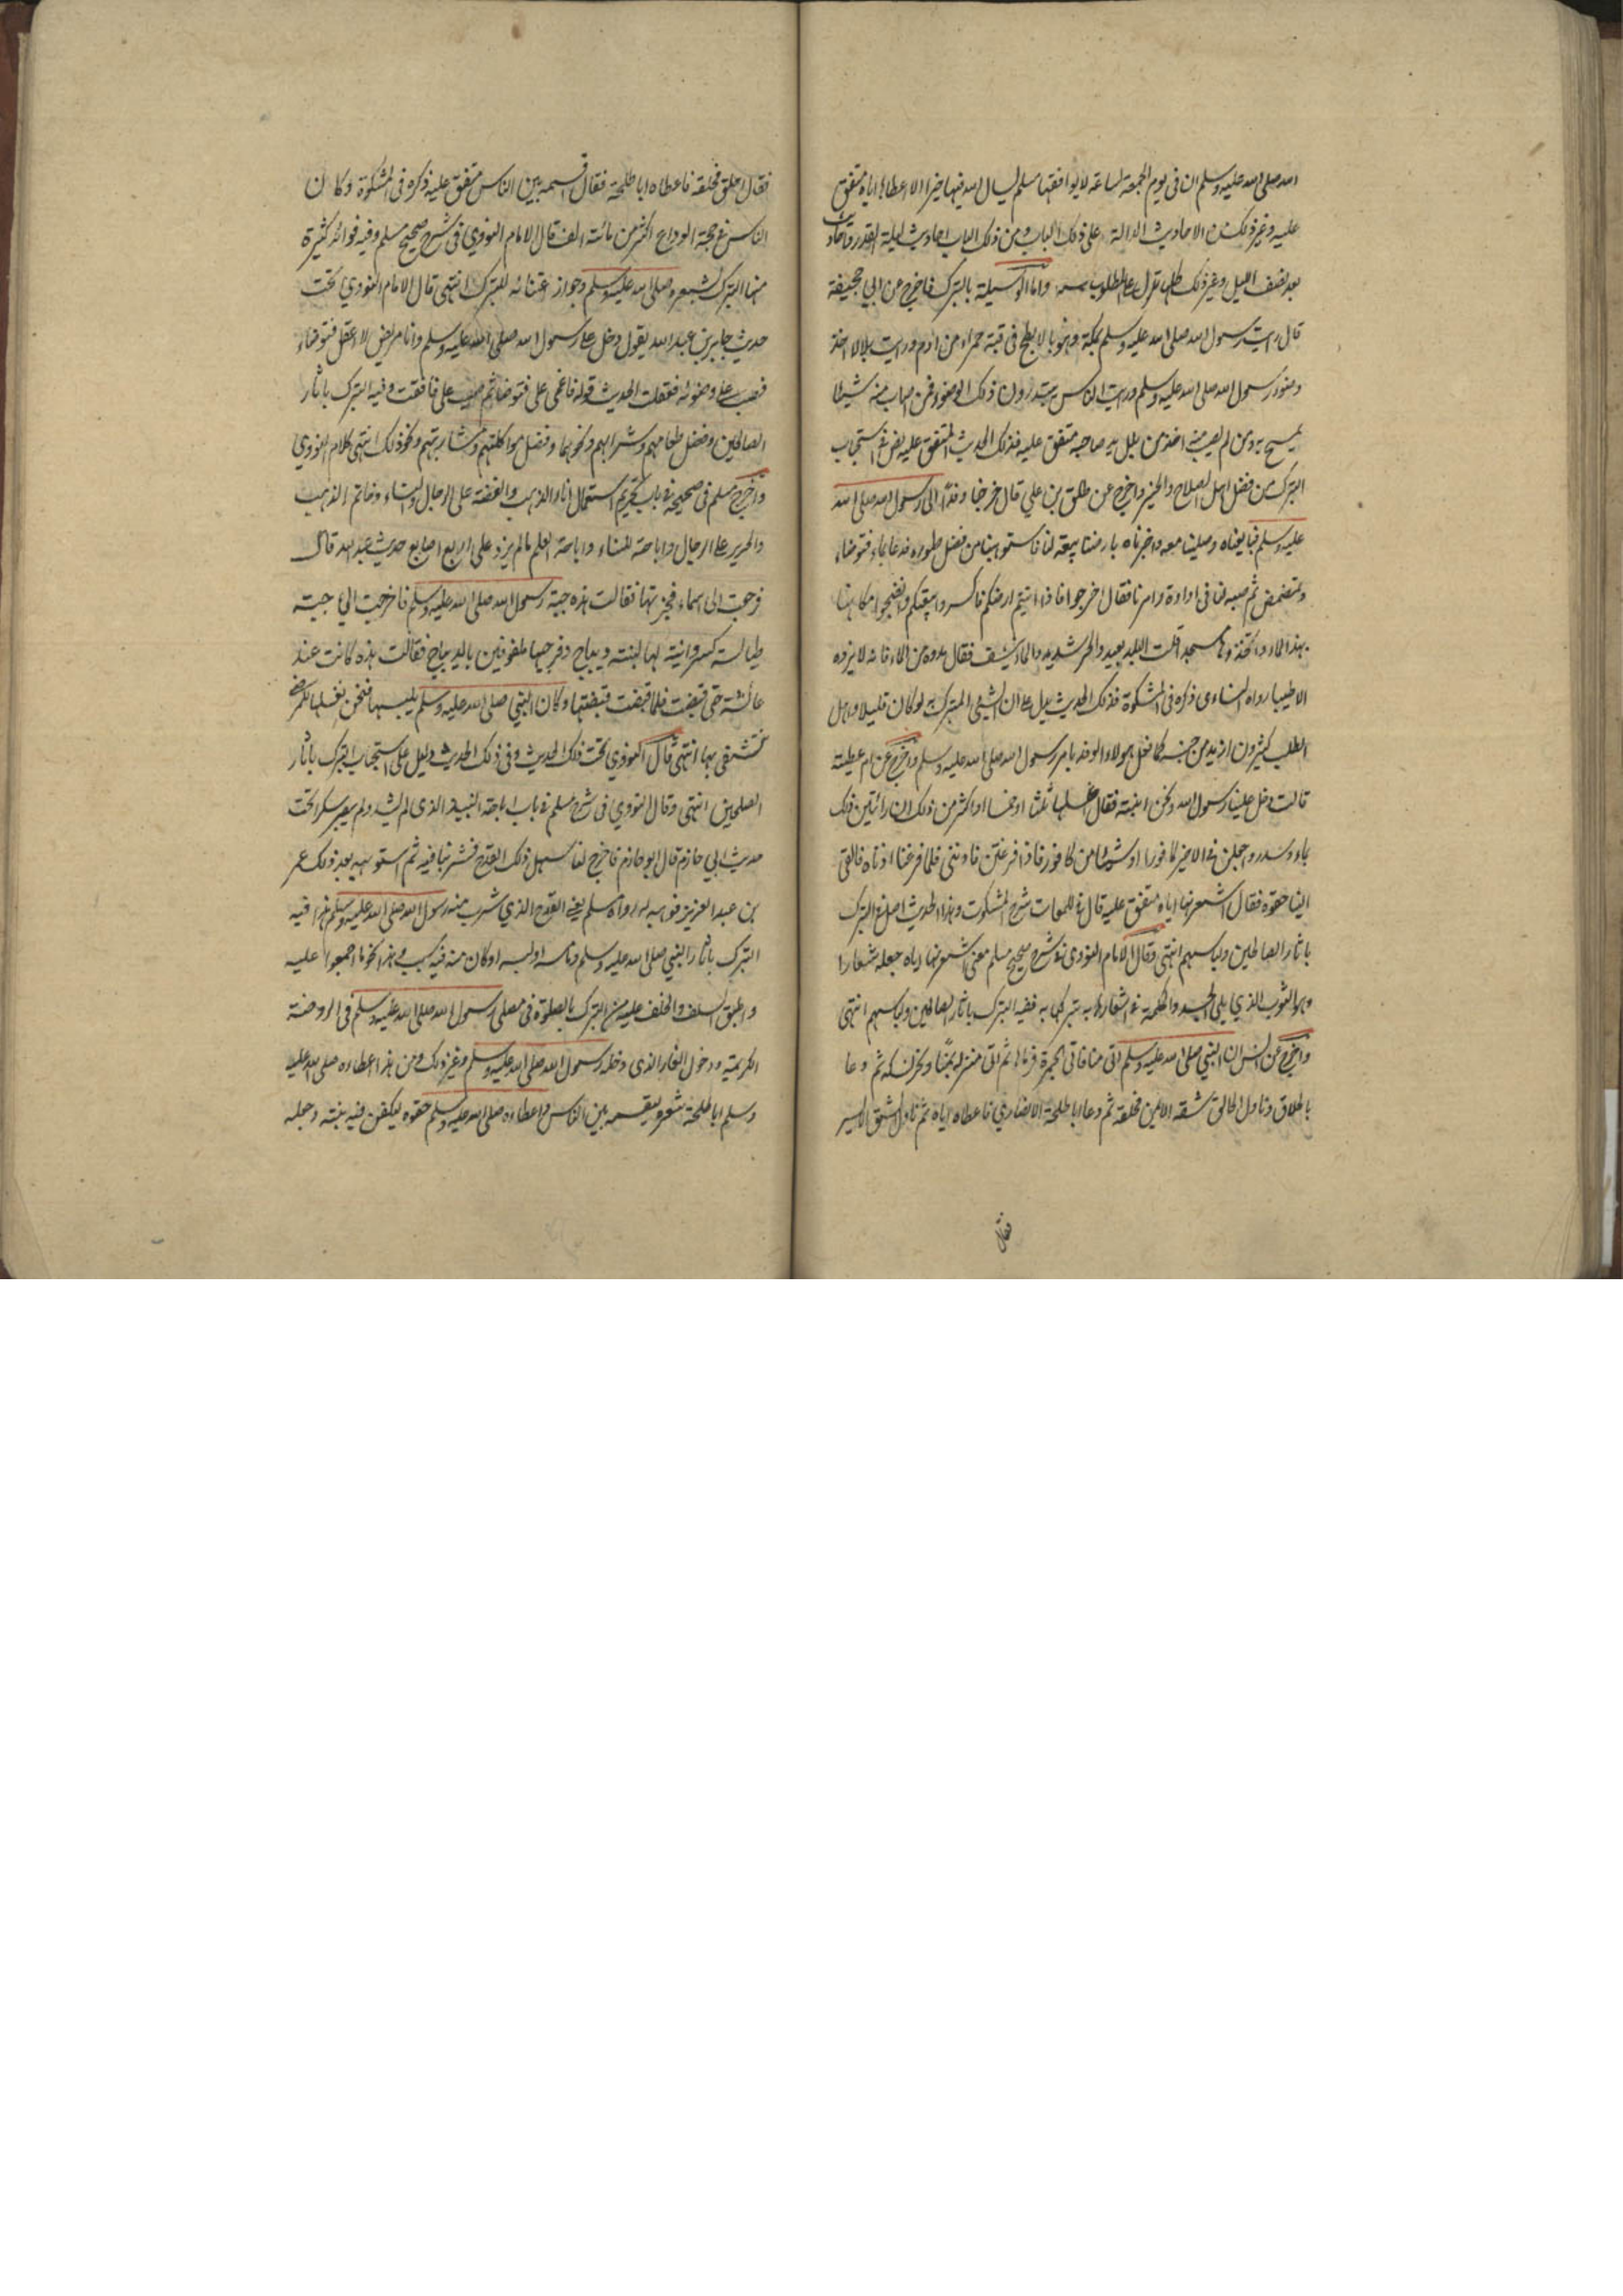 الله صلى الله عليه وسلم ان في يوم الجمعة لساعة لا يوافقها مسلم يسال الله فيها خيرا الا اعطاه اياه متفق
عليه وغير ذلك من الاحاديث الدالة على ذلك الباب ومن ذلك الباب احاديث ليلة القدر واحاديث
بعد نصف الليل وغير ذلك كلها تدل على المطلوب واما الوسيلة بالتبرك فاخرج من ابي جحيفة
قال رايت رسول الله صلى الله عليه وسلم بمكة وهو بالابطح في قبة حمراء من ادم ورايت بلالا اخذ
وضوء رسول الله صلى الله عليه وسلم ورايت الناس يبتدرون ذلك الوضوء فمن اصاب منه شيئا
تمسح به ومن لم يصب منه اخذ من بلل يد صاحبه متفق عليه فذلك الحديث المتفق عليه نص في استحباب
التبرك من فضل اهل الصلاح والخير واخرج عن طلق بن علي قال خرجنا وفدا الى رسول الله صلى الله
عليه وسلم فبايعناه وصلينا معه واخبرناه بارضنا بيعة لنا فاستوهبنا من فضل طهوره فدعا بماء فتوضاء
وتمضمض ثم صبه لنا في اداوة وامرنا فقال اخرجوا فاذا اتيتم ارضكم فاكسروا بيعتكم وانضحوا مكانها
بهذا الماء واتخذوها مسجد اقلت البلد بعيد والحر شديد والماء ينشف فقال مدوه من الماء فانه لا يزده
الا طيبا رواه النساءي ذكره في المشكوة فذلك الحديث يدل على ان الشيئ المتبرك لو كان قليلا واهل
الطلب كثيرون ازيد من جنسه كما فعل هولاء الوفد بامر رسول الله صلى الله عليه وسلم واخرج عن ام عطية
قالت دخل علينا رسول الله ونحن ابنته فقال اغسلها ثلثا او خمسا او اكثر من ذلك ان رائتين ذلك
بماء وسدر واجعلن في الاخير كافورا او شيئا من كافور فاذا فرغتن فاذنني فلما فرغنا اذناه فالقى
الينا حقوه فقال اشعرنها اياه متفق عليه قال في اللمعات شرح المشكوت وهذا الحديث اصل في التبرك
باثار الصالحين ولباسهم انتهى وقال الامام النووي في شرح صحيح مسلم معنى اشعرنها اياه جعله شعارا
وهو الثوب الذي يلي الجسد والحكمة في اشعارها به تبركها به ففيه التبرك باثار الصالحين ولباسهم انتهى
واخرج عن انس ان النبي صلى الله عليه وسلم اتى منا فاتى الجمرة فرماها ثم اتى منزله بمنا ونحر نسكه ثم دعا
بالحلاق وناول الحالق شقه الايمن فحلقه ثم دعا ابا طلحة الانصاري فاعطاه اياه ثم ناول الشق الايسر
فقال
فقال احلق فحلقه فاعطاه ابا طلحة فقال اقسمه بين الناس متفق عليه ذكره في المشكوة وكان
الناس في حجة الوداع اكثر من مائة الف قال الامام النووي في شرح صحيح مسلم وفيه فوائد كثيرة
منها التبرك بشعره صلى الله عليه وسلم وجواز اقتنائه للتبرك انتهى قال الامام النووي تحت
حديث جابر بن عبد الله يقول دخل على رسول الله صلى الله عليه وسلم وانا مريض لا اعقل فتوضاء
فصب علي وضوئه فعقلت الحديث قوله فاغمي علي فتوضا ثم صب علي فافقت وفيه التبرك باثار
الصالحين وفضل طعامهم وشرابهم ونحوهما وفضل مواكلتهم ومشاربتهم ونحو ذلك انتهى كلام النووي
واخرج مسلم في صحيحه في باب تحريم استعمال اناء الذهب والفضة على الرجال والنساء وخاتم الذهب
والحرير على الرجال واباحته للنساء واباحة العلم ما لم يزد على اربع اصابع حديث عبد الله قال
فرجعت الى اسماء فخبرتها فقالت هذه جبة رسول الله صلى الله عليه وسلم فاخرجت الي جبة
طيالسة كسروانية لها لبنة ديباج وفرجيها ملفوفين بالديباج فقالت هذه كانت عند
عائشة حتى قبضت فلما قبضت قبضتها وكان النبي صلى الله عليه وسلم يلبسها فنحن نغسلها للمرضى
نستشفى بها انتهى قال النووي تحت ذلك الحديث وفي ذلك الحديث دليل على استحباب التبرك باثار
الصلحين انتهى وقال النووي في شرح مسلم في باب اباحة النبيذ الذي لم يشتد ولم يصر مسكرا تحت
حديث ابي حازم قال ابو حازم فاخرج لنا سهل ذلك القدح فشربنا فيه ثم استوهبه بعد ذلك عمر
بن عبد العزيز فوهبه له رواه مسلم يعني القدح الذي شرب منه رسول الله صلى الله عليه وسلم هذا فيه
التبرك باثار النبي صلى الله عليه وسلم وما مسه او لبسه او كان منه فيه سبب وهذا نحو ما اجمعوا عليه
واطبق السلف والخلف عليه من التبرك بالصلوة في مصلى رسول الله صلى الله عليه وسلم في الروضة
الكريمة ودخول الغار الذي دخله رسول الله صلى الله عليه وسلم وغير ذلك ومن هذا اعطاءه صلى الله عليه
وسلم ابا طلحة شعره ليقسمه بين الناس واعطاءه صلى الله عليه وسلم حقوه ليكفن فيه بنته وجعله